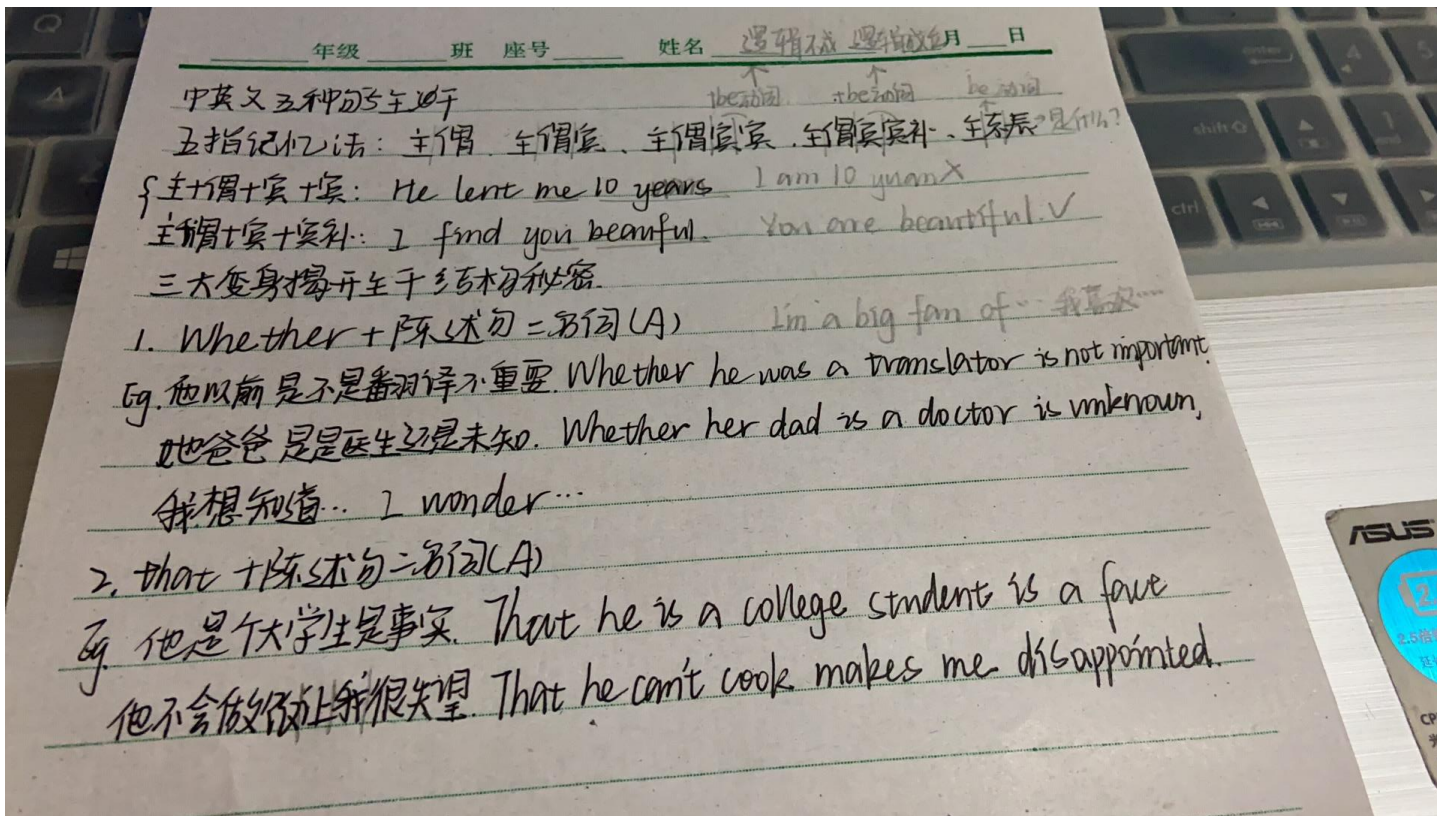 年级 班 座号 姓名 逻辑不成 逻辑成立 月 日
+be动词 +be动词 be动词
中英文五种句子主干
五指记忆法: 主谓、主谓宾、主谓宾宾、主谓宾宾补、主系表 是什么?
{主+谓+宾+宾: He lent me 10 years I am 10 yuan X
主+谓+宾+宾补: I find you beauful. You are beautiful. √
三大变身揭开主干结构秘密.
1. Whether + 陈述句 = 名词(A) I'm a big fan of … 我喜欢…
Eg. 他以前是不是翻译不重要. Whether he was a translator is not important.
她爸爸是是医生还是未知. Whether her dad is a doctor is unknown.
我想知道… I wonder…
2. that + 陈述句 = 名词(A)
Eg. 他是个大学生是事实. That he is a college student is a fact
他不会做饭让我很失望. That he can't cook makes me disappointed.
ASUS
2.5倍
CP